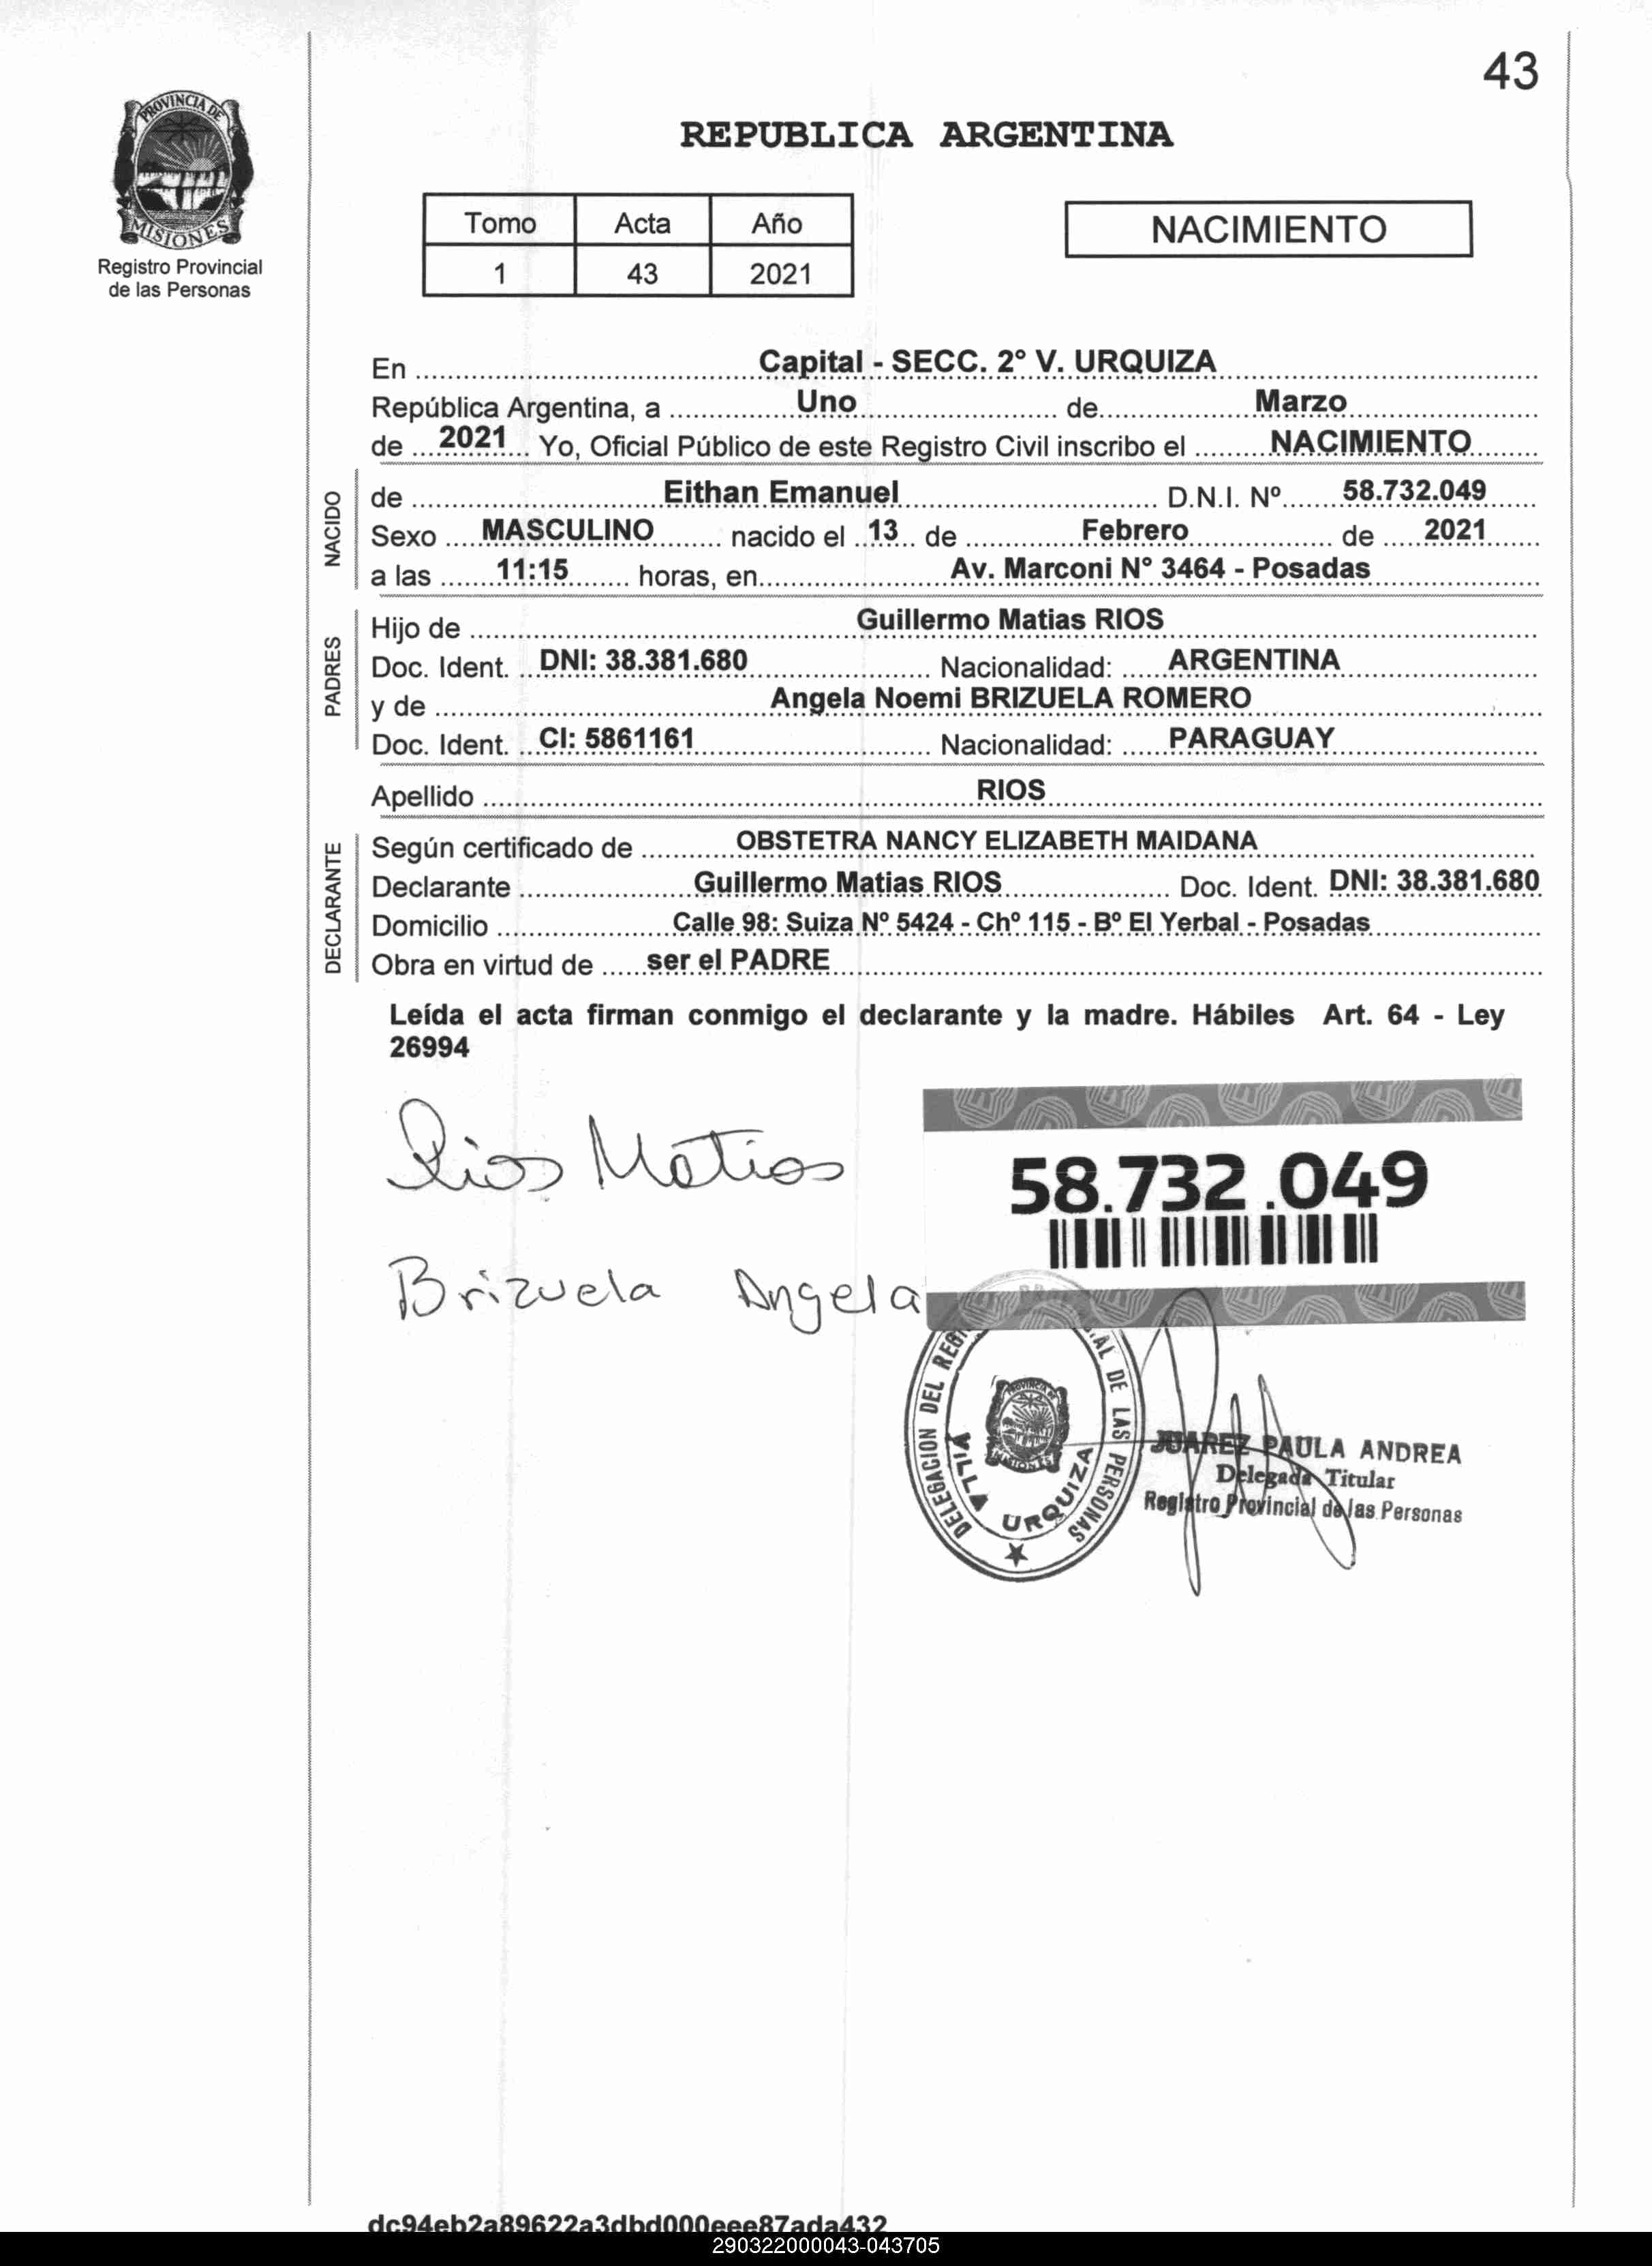 43
PROVINCIA DE
MISIONES
Registro Provincial
de las Personas
REPUBLICA ARGENTINA
Tomo Acta Año
1 43 2021
NACIMIENTO
En Capital - SECC. 2° V. URQUIZA
República Argentina, a Uno de Marzo
de 2021 Yo, Oficial Público de este Registro Civil inscribo el NACIMIENTO
NACIDO
de Eithan Emanuel D.N.I. Nº 58.732.049
Sexo MASCULINO nacido el 13 de Febrero de 2021
a las 11:15 horas, en Av. Marconi N° 3464 - Posadas
PADRES
Hijo de Guillermo Matias RIOS
Doc. Ident. DNI: 38.381.680 Nacionalidad: ARGENTINA
y de Angela Noemi BRIZUELA ROMERO
Doc. Ident. CI: 5861161 Nacionalidad: PARAGUAY
Apellido RIOS
DECLARANTE
Según certificado de OBSTETRA NANCY ELIZABETH MAIDANA
Declarante Guillermo Matias RIOS Doc. Ident. DNI: 38.381.680
Domicilio Calle 98: Suiza Nº 5424 - Chº 115 - Bº El Yerbal - Posadas
Obra en virtud de ser el PADRE
Leída el acta firman conmigo el declarante y la madre. Hábiles Art. 64 - Ley
26994
Rios Matias
58.732.049
Brizuela Angela
DELEGACION DEL DE LAS PERSONAS
PROVINCIA DE
MISIONES
VILLA URQUIZA
JUAREZ PAULA ANDREA
Delegada Titular
Registro Provincial de las Personas
dc94eb2a89622a3dbd000eee87ada432
290322000043-043705